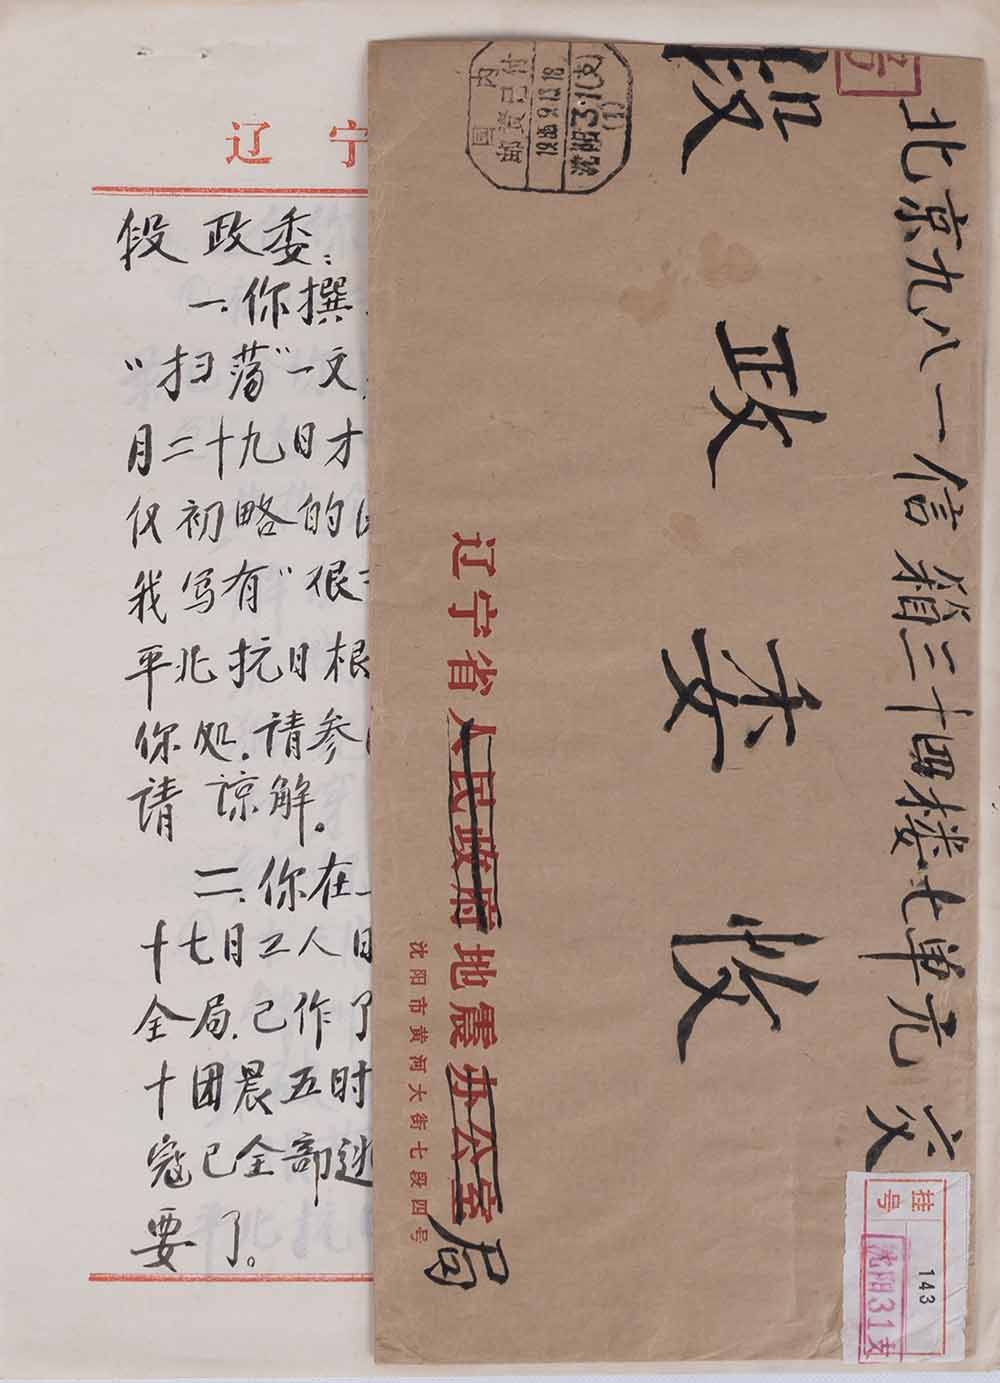 辽宁
段政委：
一、你撰
“扫荡”一文
月二十九日才
仅初略的
我写有“很
平北抗日根
你处，请参
请谅解。
二、你在
十七月工人日
全局，已作了
十团晨五时
寇已全部逃
要了。
北京九八一信箱三十四楼七单元交
段政委收
辽宁省人民政府地震办公室局
沈阳市黄河大街七段四号
国内
邮资已付
1986.9.13.18
沈阳31(支)
(1)
挂号
143
沈阳31支